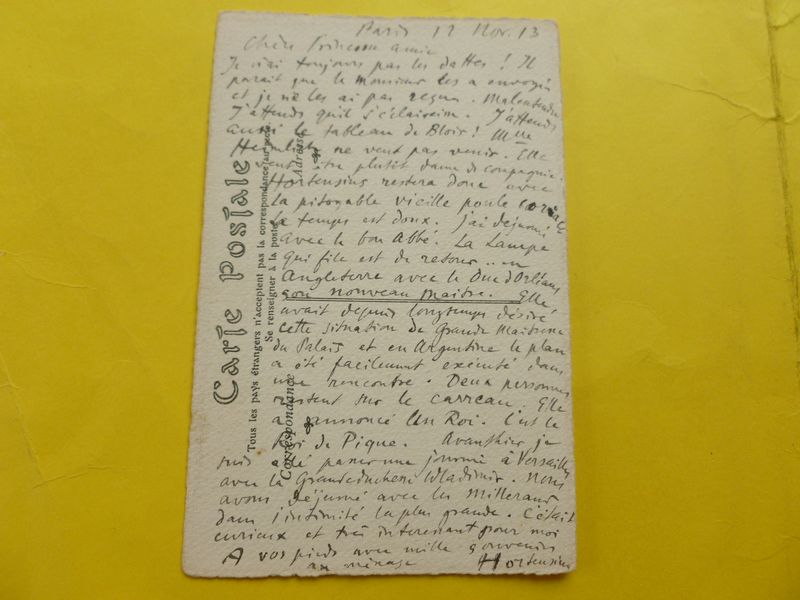 Paris 12 Nov. 13
Chère Princesse amie
Je n'ai toujours pas les dattes ! Il
parait que le monsieur les a envoyés
et je ne les ai pas reçus. Malentendu
J'attends qu'il s'éclaircisse. J'attends
aussi le tableau de Blois ! Mme
ne veut pas venir. Elle
veut être plutôt dame de compagnie.
Hortensius restera donc avec
la pitoyable vieille poule
Le temps est doux. J'ai déjeuné
avec le bon Abbé. La Lampe
qui file est de retour .. en
Angleterre avec le Duc d'Orléans
son nouveau maitre. Elle
avait depuis longtemps désiré
cette situation de Grande Maitresse
du Palais et en Argentine le plan
a été facilement exécuté dans
une rencontre. Deux personnes
restent sur le carreau. Elle
a annoncé Un Roi. C'est le
Roi de Pique. Avanthier je
suis allé passer une journée à Versailles
avec la Grande duchesse Wladimir. Nous
avons déjeuné avec les Millerand
dans l'intimité la plus grande. C'était
curieux et très interessant pour moi
A vos pieds avec mille souvenirs
au ménage Hortensius
Carte Postale
Tous les pays étrangers n'acceptent pas la correspondance au recto
Se renseigner à la poste
Correspondance
Adresse